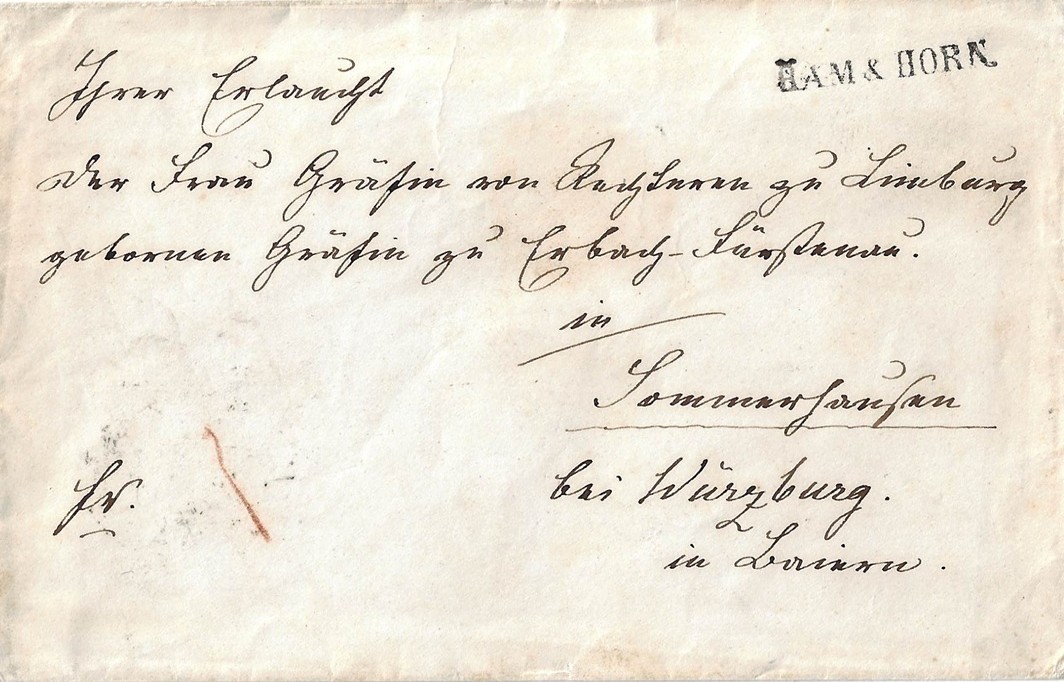 HAM & HORN
Ihrer Erlaucht
der Frau Gräfin von Rechteren zu Limburg
gebornen Gräfin zu Erbach-Fürstenau.
in
Sommerhausen
fr.
bei Würzburg.
in Baiern.